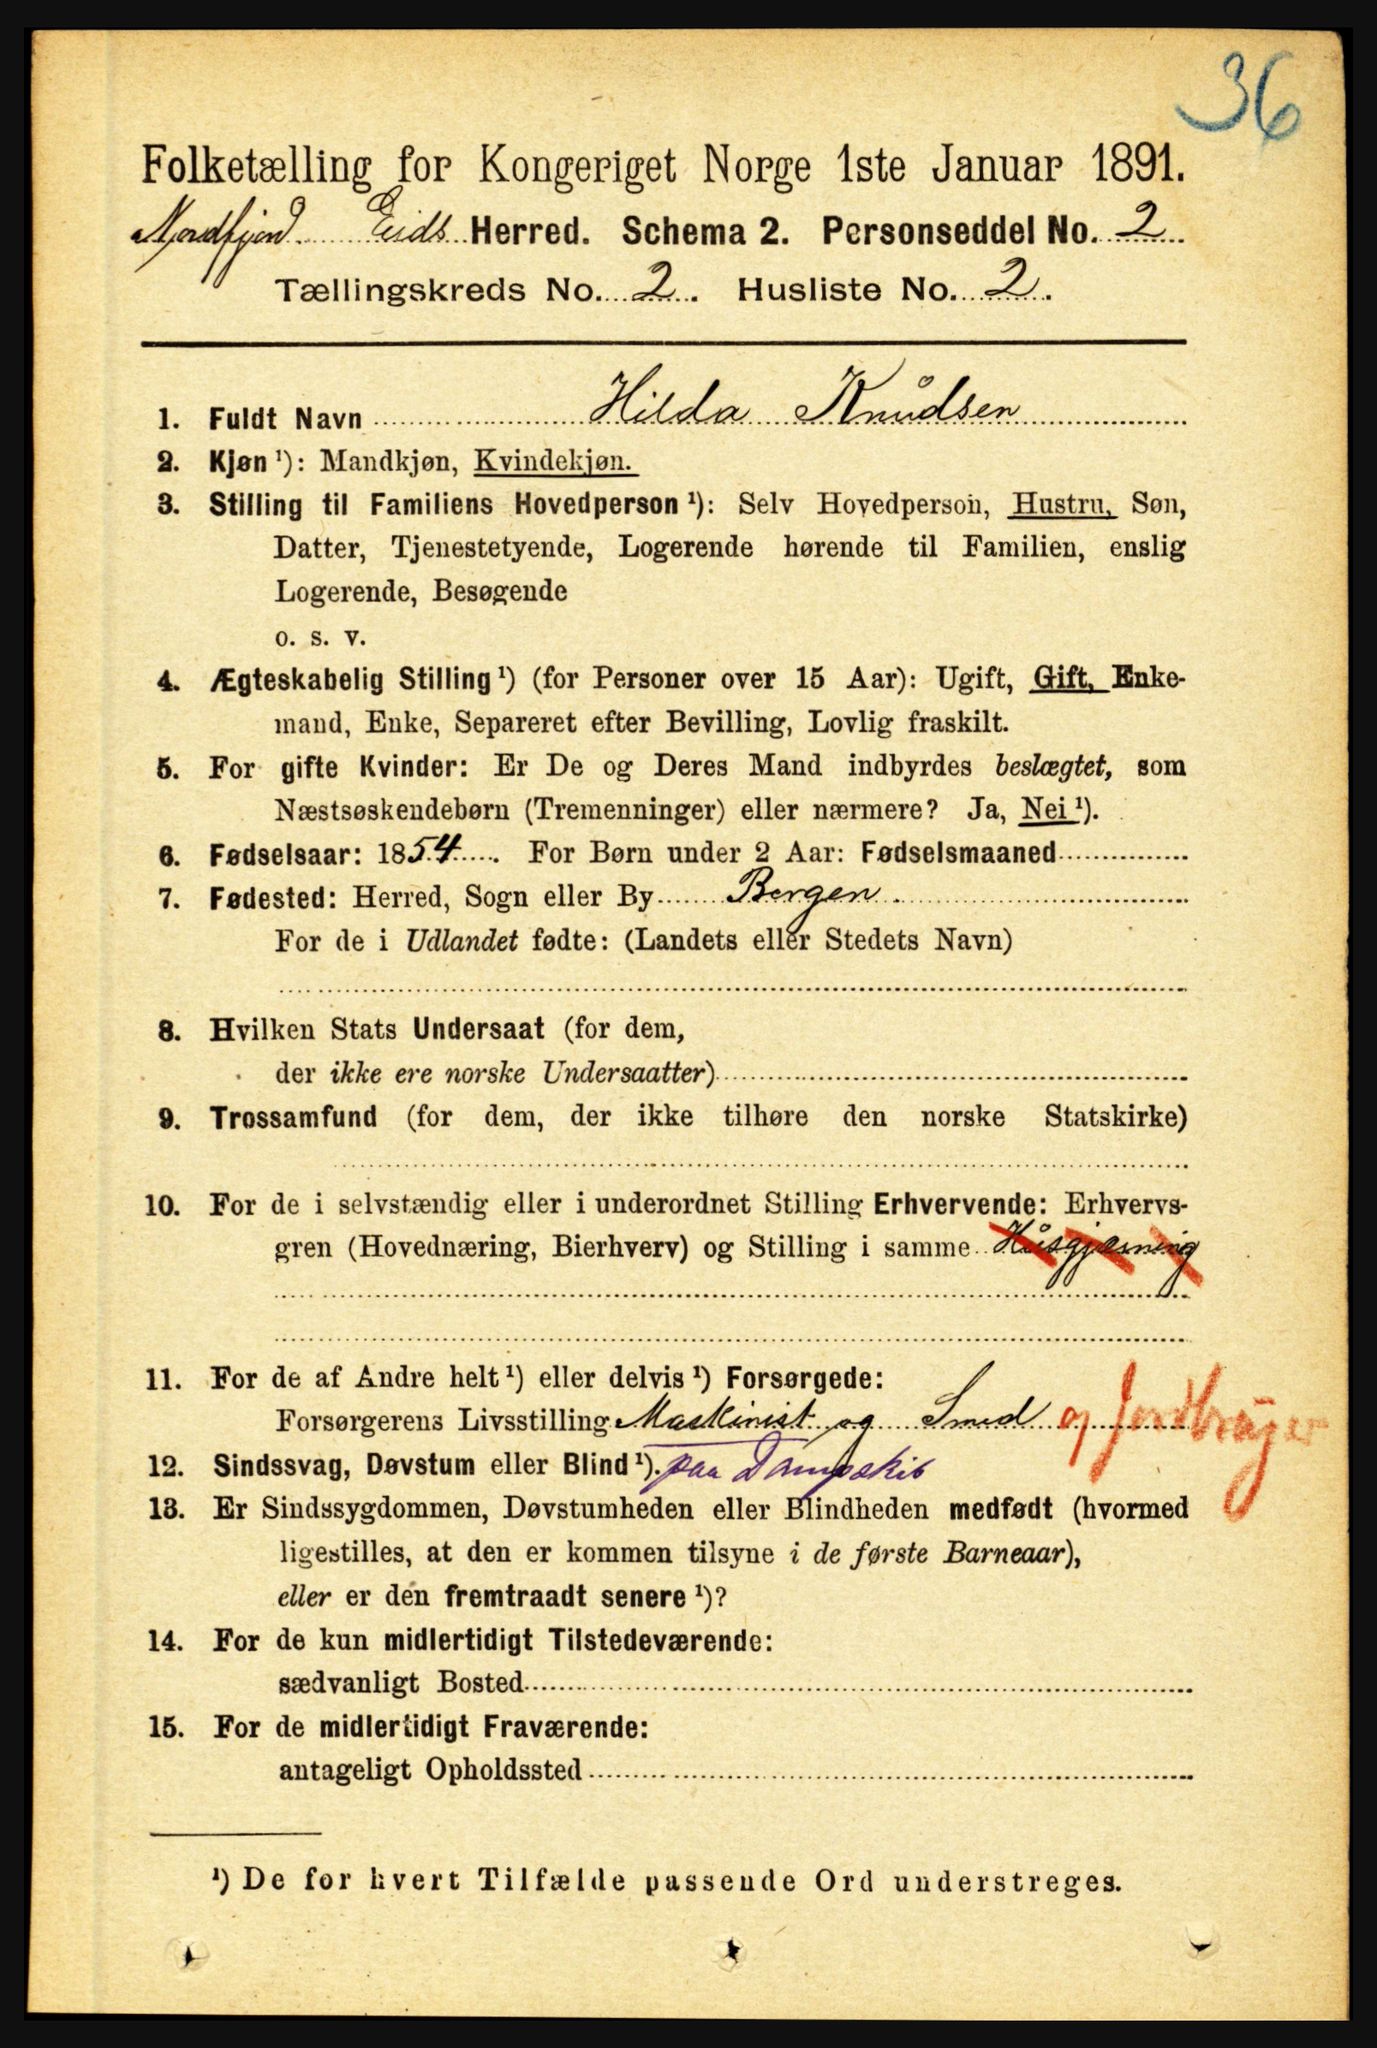 36
Folketælling for Kongeriget Norge 1ste Januar 1891.
Nordfjord Eids Herred. Schema 2. Personseddel No. 2
Tællingskreds No. 2. Husliste No. 2.
1. Fuldt Navn Hilda Knudsen
2. Kjøn ¹): Mandkjøn, Kvindekjøn.
3. Stilling til Familiens Hovedperson ¹): Selv Hovedperson, Hustru, Søn,
Datter, Tjenestetyende, Logerende hørende til Familien, enslig
Logerende, Besøgende
o. s. v.
4. Ægteskabelig Stilling ¹) (for Personer over 15 Aar): Ugift, Gift, Enke-
mand, Enke, Separeret efter Bevilling, Lovlig fraskilt.
5. For gifte Kvinder: Er De og Deres Mand indbyrdes beslægtet, som
Næstsøskendebørn (Tremenninger) eller nærmere? Ja, Nei ¹).
6. Fødselsaar: 1854. For Børn under 2 Aar: Fødselsmaaned
7. Fødested: Herred, Sogn eller By Bergen.
For de i Udlandet fødte: (Landets eller Stedets Navn)
8. Hvilken Stats Undersaat (for dem,
der ikke ere norske Undersaatter)
9. Trossamfund (for dem, der ikke tilhøre den norske Statskirke)
10. For de i selvstændig eller i underordnet Stilling Erhvervende: Erhvervs-
gren (Hovednæring, Bierhverv) og Stilling i samme Husgjærning
11. For de af Andre helt ¹) eller delvis ¹) Forsørgede:
Forsørgerens Livsstilling Maskinist og Smed og Jordbruger
12. Sindssvag, Døvstum eller Blind ¹). paa Dampskib
13. Er Sindssygdommen, Døvstumheden eller Blindheden medfødt (hvormed
ligestilles, at den er kommen tilsyne i de første Barneaar),
eller er den fremtraadt senere ¹)?
14. For de kun midlertidigt Tilstedeværende:
sædvanligt Bosted
15. For de midlertidigt Fraværende:
antageligt Opholdssted
¹) De for hvert Tilfælde passende Ord understreges.